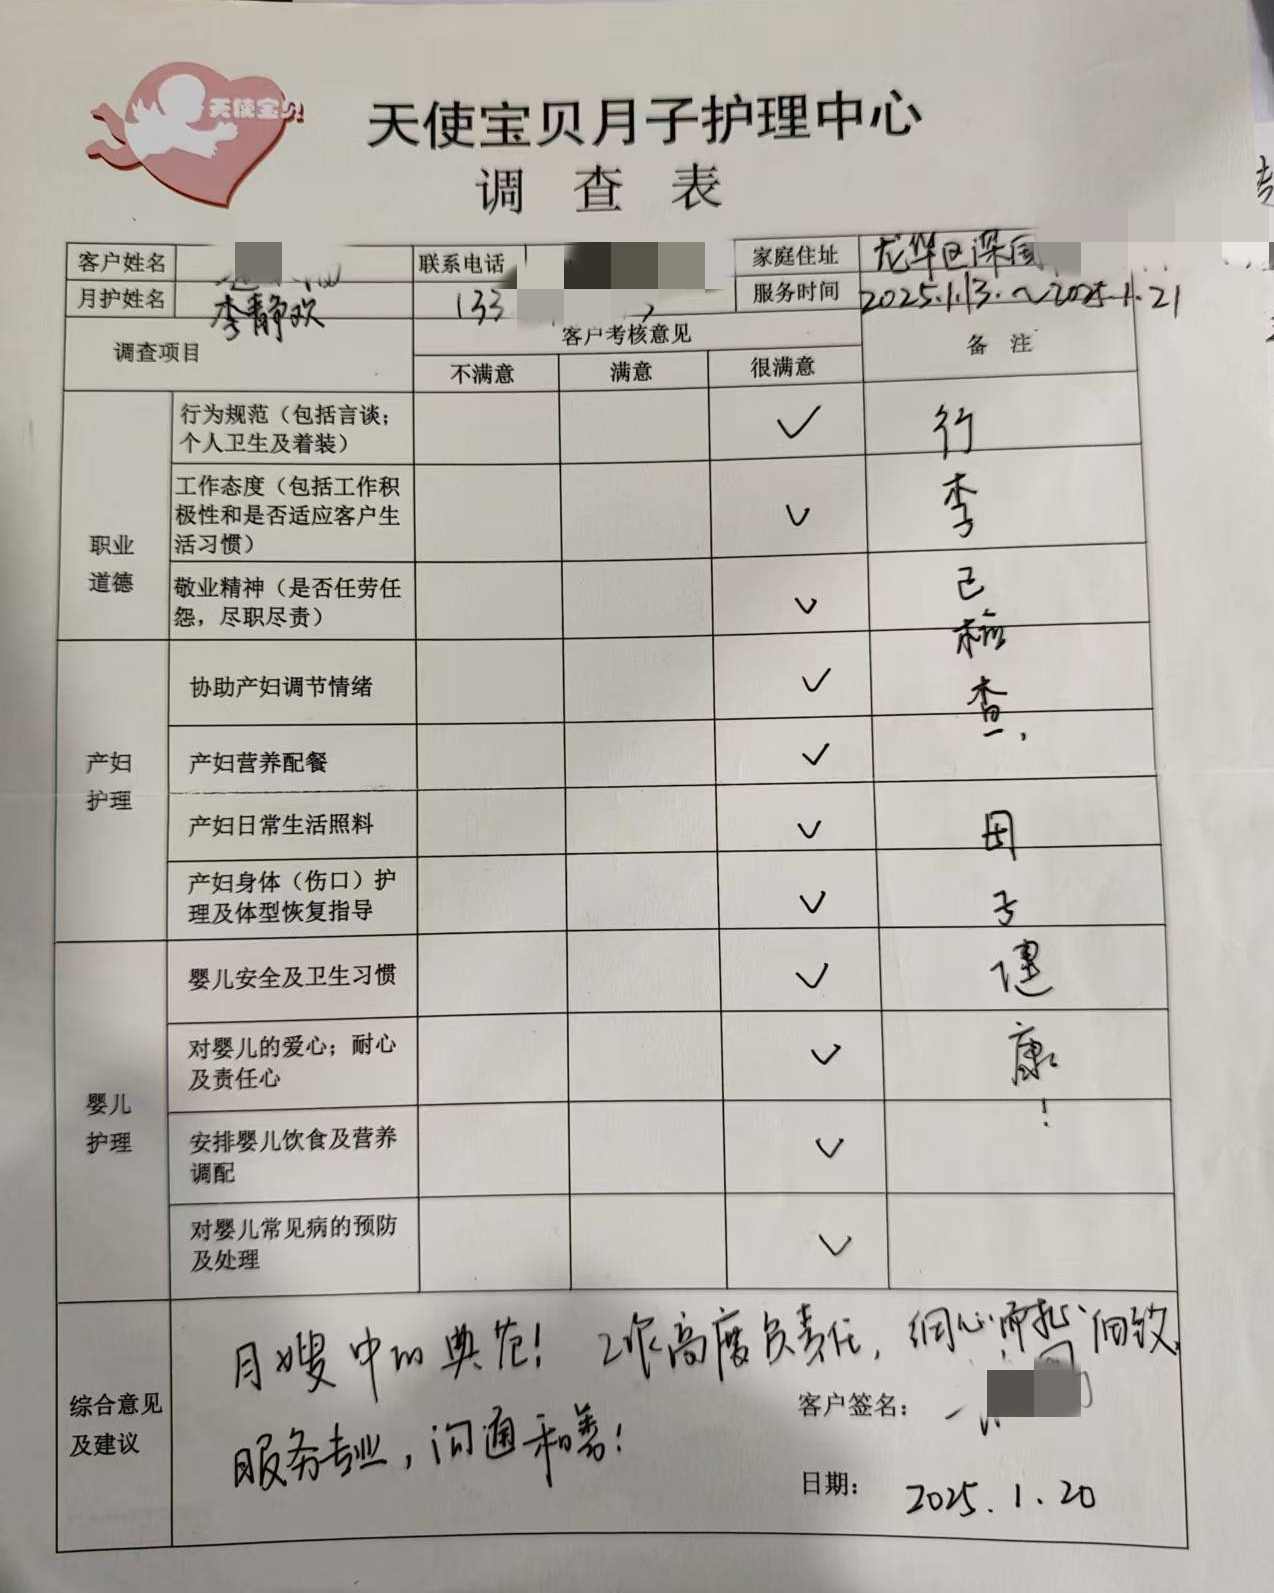 天使宝贝
天使宝贝月子护理中心
调 查 表
客户姓名 联系电话 家庭住址 龙华区深国
月护姓名 李静欢 133 服务时间 2025.1.13.～2025.1.21
调查项目 客户考核意见 备 注
不满意 满意 很满意
职业
道德
行为规范（包括言谈；
个人卫生及着装） ✓
工作态度（包括工作积
极性和是否适应客户生
活习惯） ✓
敬业精神（是否任劳任
怨，尽职尽责） ✓
产妇
护理
协助产妇调节情绪 ✓
产妇营养配餐 ✓
产妇日常生活照料 ✓
产妇身体（伤口）护
理及体型恢复指导 ✓
婴儿
护理
婴儿安全及卫生习惯 ✓
对婴儿的爱心；耐心
及责任心 ✓
安排婴儿饮食及营养
调配 ✓
对婴儿常见病的预防
及处理 ✓
行李已检查，
田子健康！
综合意见
及建议
月嫂中的典范！工作高度负责任，细心而 细致，
服务专业，沟通和善！
客户签名：
日期： 2025.1.20